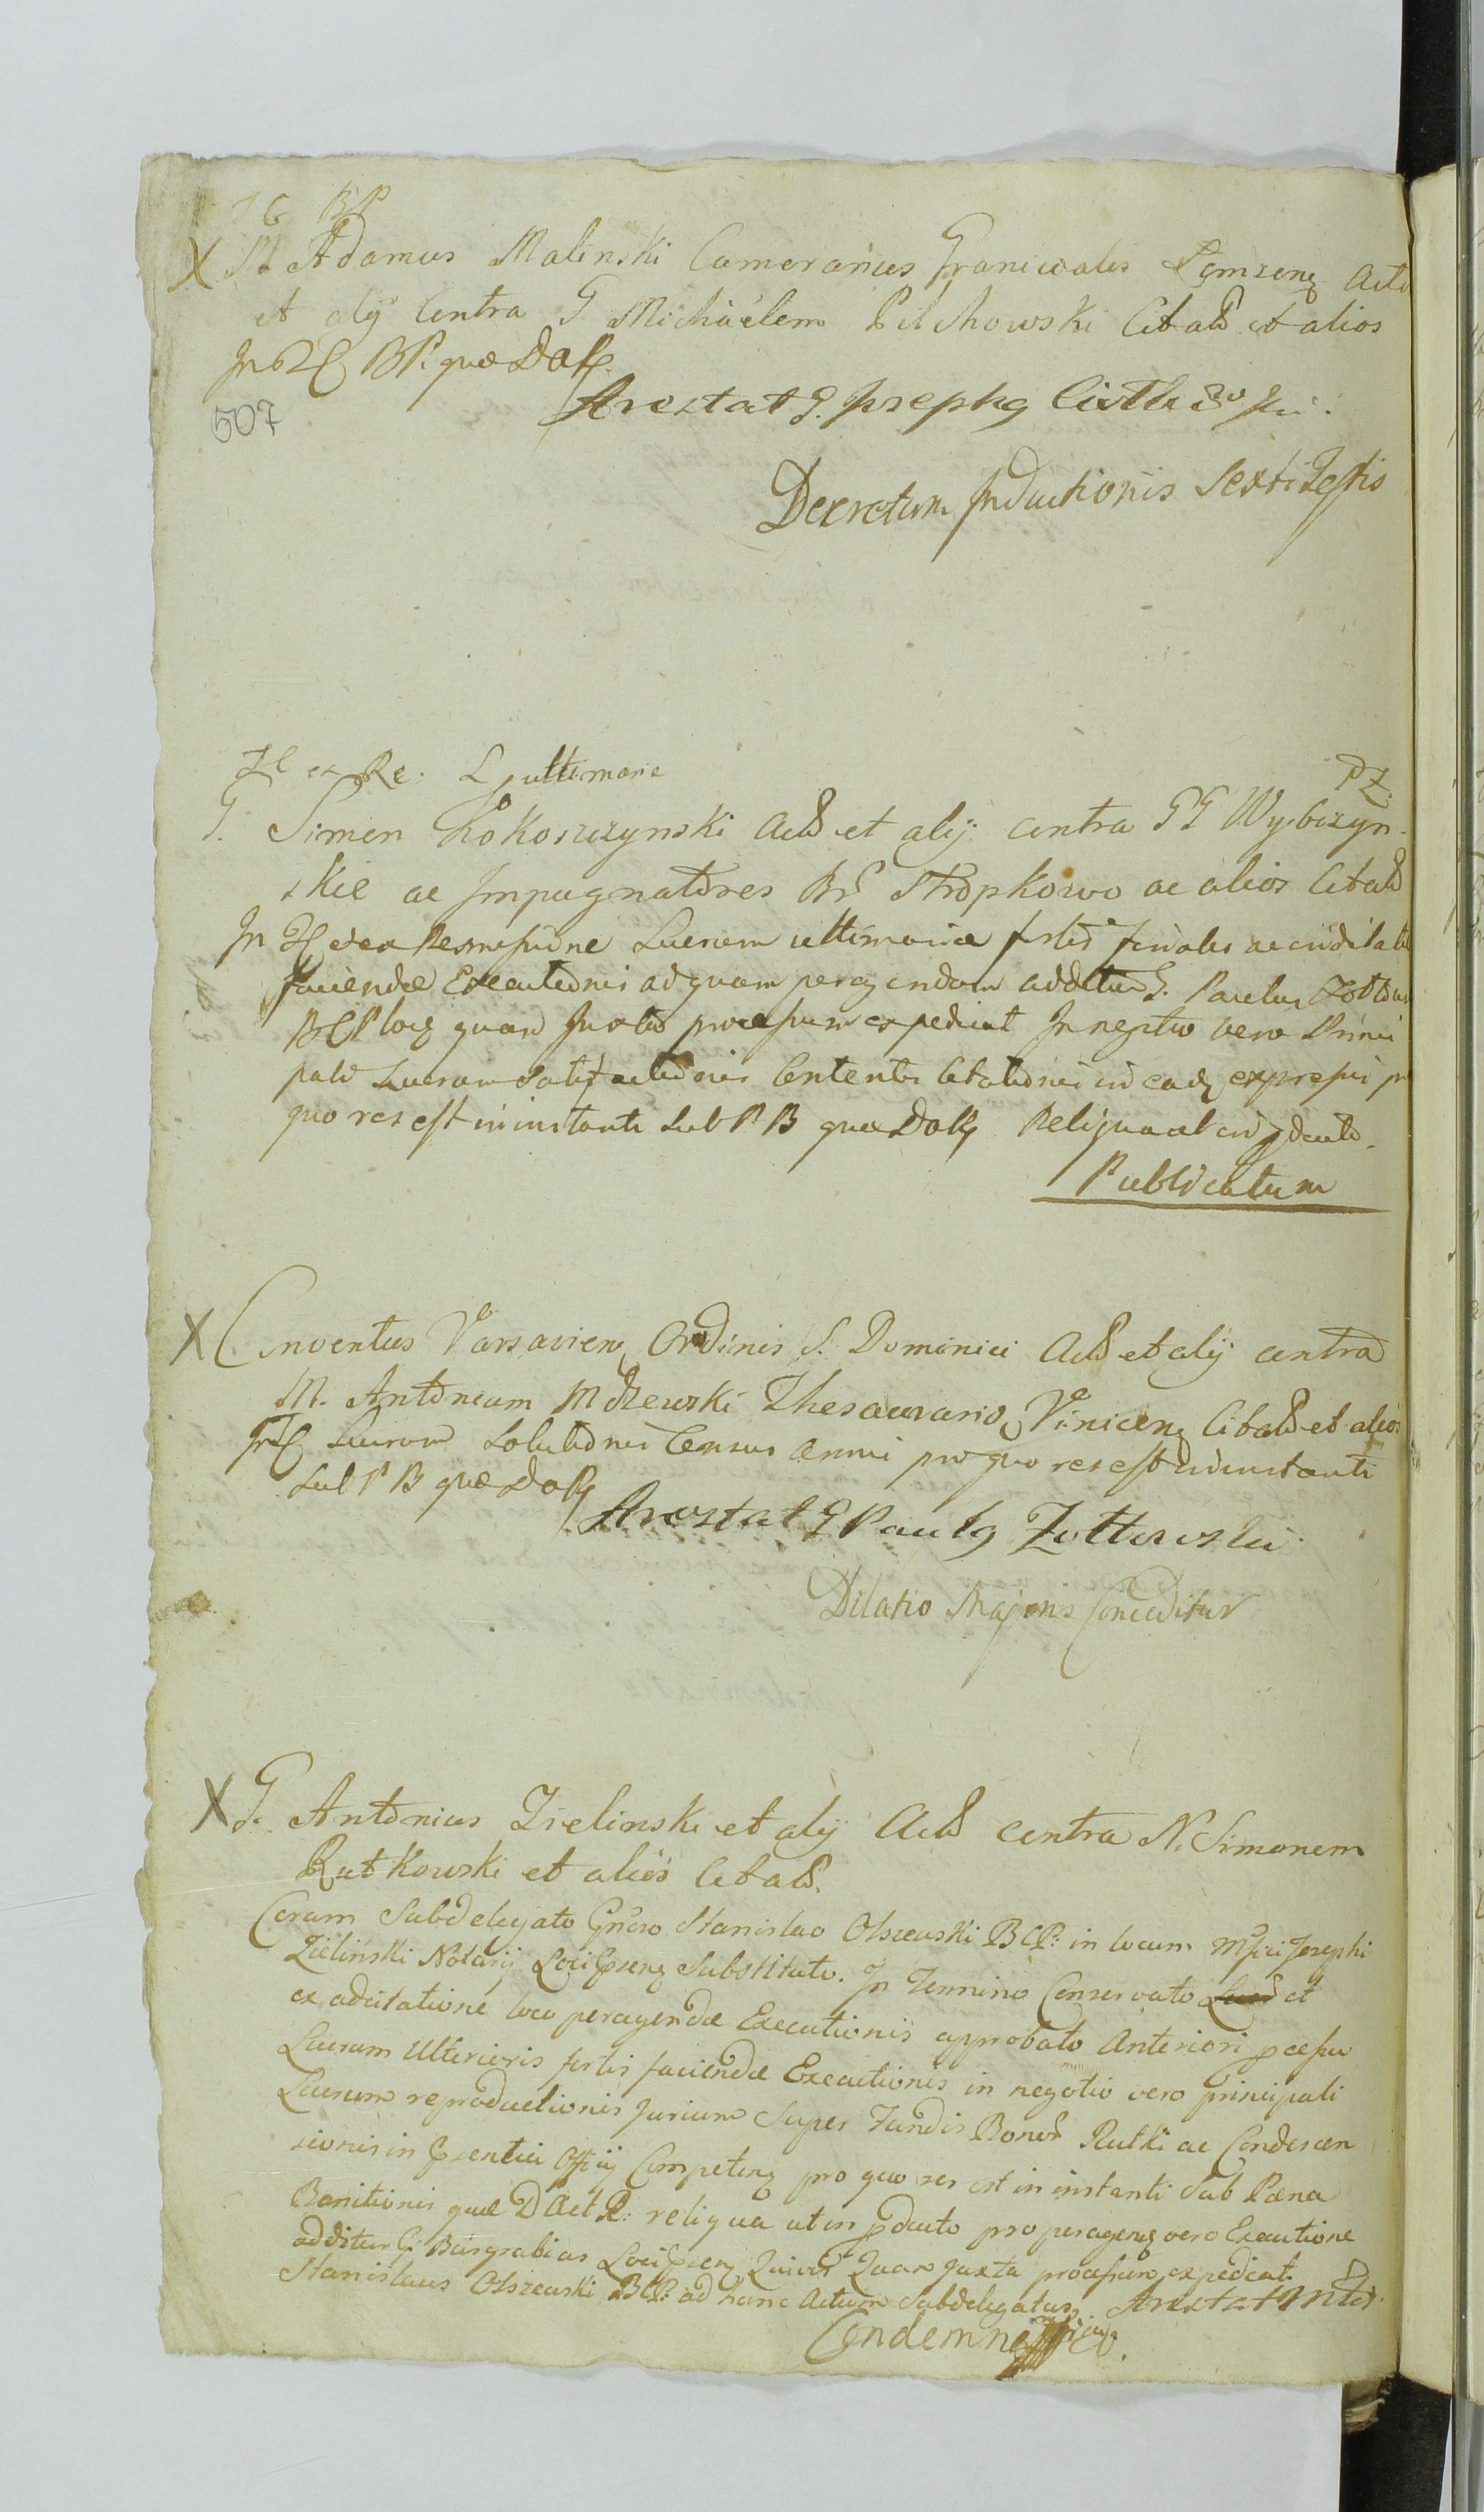 T C BP
X M Adamus Malinski Camerarius Granicalis Łomzens Acto
et alij Contra G Michaelem Pilchowski Citatos et alios
In TC BP. quæ DaR
507
Arestat G. Josephg
Decretum Inductionis sexti Testis
TC ex Re: L ultimarie
PZ
G. Simon Kokoszczynski Actor et alij contra GG Wybczyn-
skie ac Impugnatores Br Stropkowo ac alios Citatos
In TC et ex Remissione Lucrum ultimaria fortis
faciendæ Executionis ad quam peragendam additur G. Paulus
BCP locg quam Juxta processum expediat In negotio vero Princi
pali Lucrum Satisfactionis Contentis Citationis in eadg expressis pro
quo res est in instanti sub P B quæ DaR Reliqua ut in pdcuto.
Publicatum
X Conventus Varsavieng Ordinis S. Dominici Actor et alij contra
M. Antonium Mdzewski Thesaurario Viniceng Citatos et alios
In TC Lucrum Solutionis Census annui pro quo res est in instanti
sub P B quæ DaR
Arestat G Paulg Zottowski
Dilatio Majoris Conceditur
X G. Antonius Zielinski et alij Actor contra N. Simonem
Rutkowski et alios Citatos.
Coram Subdelegato Gnroso Stanislao Olszewski BCP: in locum Mfici Josephi
Zielinski Notarij Loci pseng Substituto. In Termino Conservato et
ex adcitatione loco peragendæ Executionis approbato Anteriori pcessu
Lucrum Ulterioris fortis faciendæ Executionis in negotio vero principali
Lucrum reproductionis Jurium Super Fundis Bonor Rutki ac Condescen
sionis in psentia Officij Competeng pro quo res est in instanti Sub Pæna
Banitionis quæ D Act R: reliqua ut in pdcuto pro perageng vero Executione
additur G. Burgrabius Loci pseng Quivis Quam juxta processum expediat.
Stanislaus Olszewski BCP: ad hanc Actum Subdelegatus. Arestat